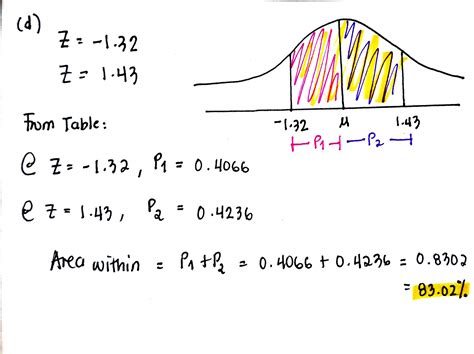 (d)
Z = -1.32
Z = 1.43
-1.32 μ 1.43
P1 P2
From Table:
@ Z = -1.32, P1 = 0.4066
@ Z = 1.43, P2 = 0.4236
Area within = P1 + P2 = 0.4066 + 0.4236 = 0.8302
= 83.02%